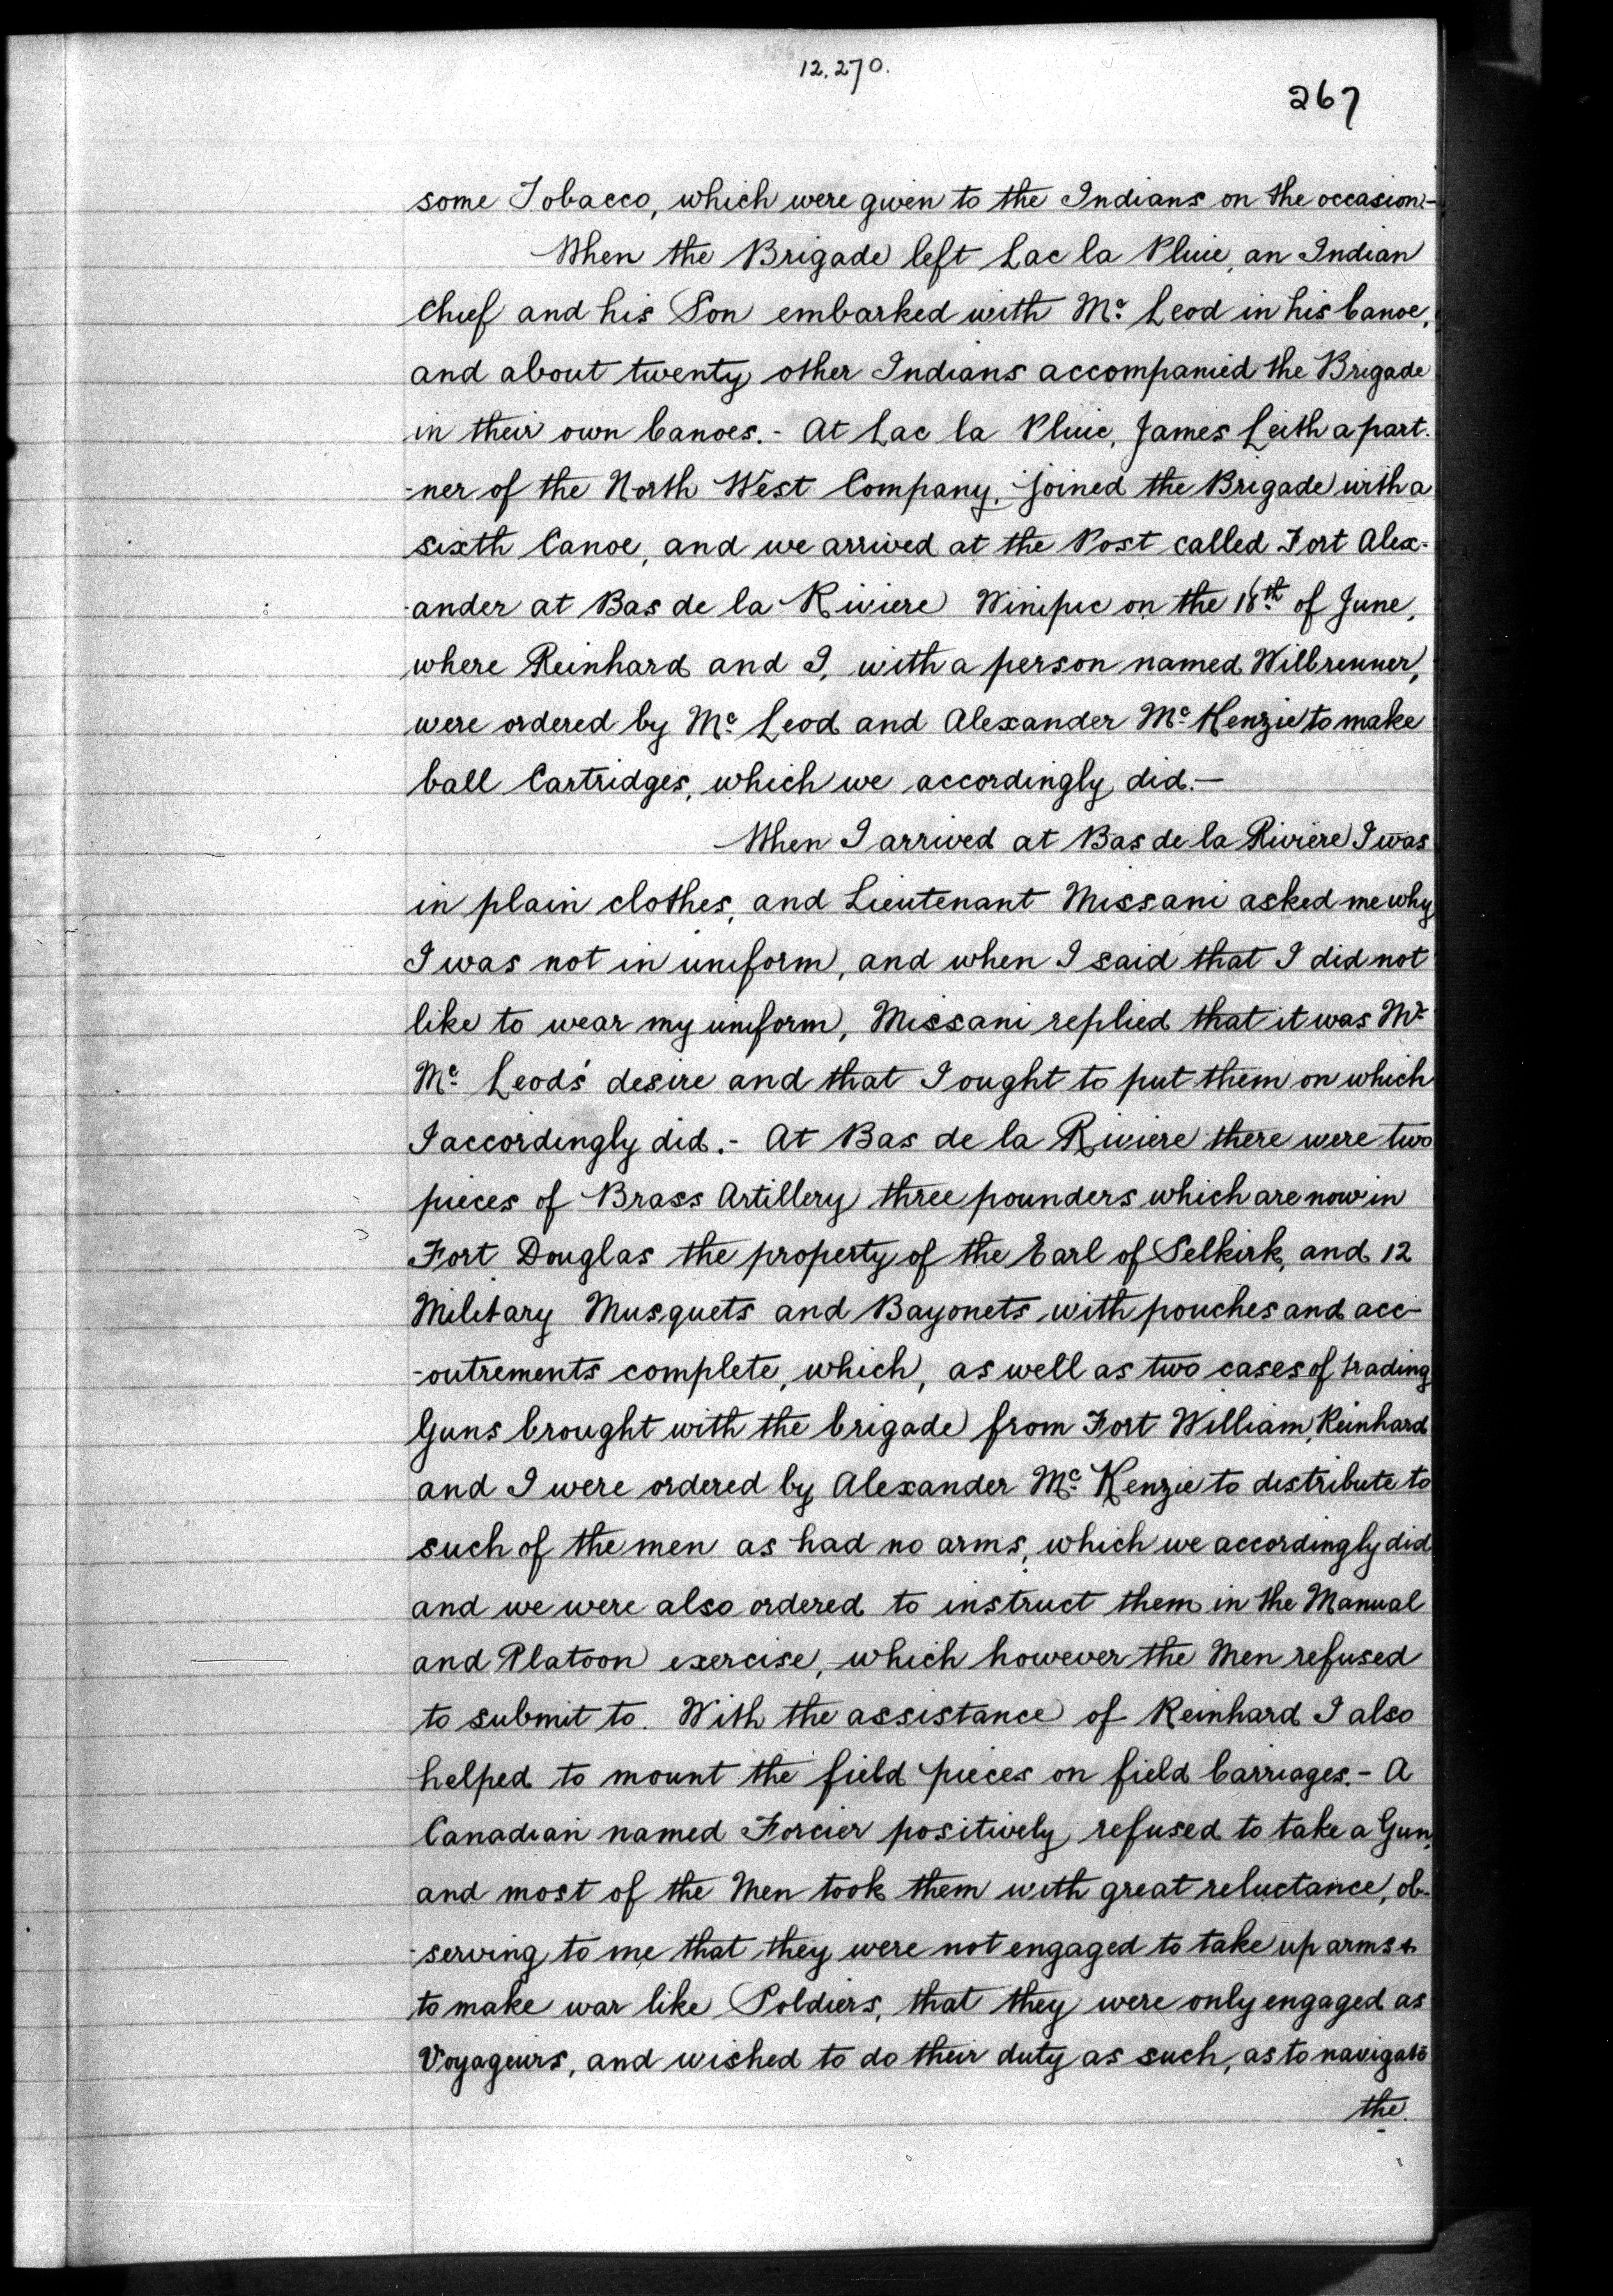 12,270.
267
some Tobacco, which were given to the Indians on the occasion:-
When the Brigade left Lac la Pluie, an Indian
Chief and his Son embarked with Mc Leod in his Canoe,
and about twenty other Indians accompanied the Brigade
in their own Canoes.- At Lac la Pluie, James Leith a part-
-ner of the North West Company, joined the Brigade with a
sixth Canoe, and we arrived at the Post called Fort Alex-
-ander at Bas de la Riviere Winipic on the 16th of June,
where Reinhard and I, with a person named Wilbrenner,
were ordered by Mc Leod and Alexander Mc Kenzie to make
ball Cartridges, which we accordingly did.—
When I arrived at Bas de la Riviere I was
in plain clothes, and Lieutenant Missani asked me why
I was not in uniform, and when I said that I did not
like to wear my uniform, Missani replied that it was Mr
Mc Leods' desire and that I ought to put them on which
I accordingly did.- At Bas de la Riviere there were two
pieces of Brass Artillery three pounders which are now in
Fort Douglas the property of the Earl of Selkirk, and 12
Military Musquets and Bayonets with pouches and acc-
-outrements complete, which, as well as two cases of trading
Guns brought with the brigade from Fort William, Reinhard
and I were ordered by Alexander Mc Kenzie to distribute to
such of the men as had no arms, which we accordingly did
and we were also ordered to instruct them in the Manual
and Platoon exercise, which however the Men refused
to submit to. With the assistance of Reinhard I also
helped to mount the field pieces on field Carriages.- A
Canadian named Forcier positively refused to take a Gun,
and most of the Men took them with great reluctance, ob-
-serving to me that they were not engaged to take up arms &
to make war like Soldiers, that they were only engaged as
Voyageurs, and wished to do their duty as such, as to navigate
the